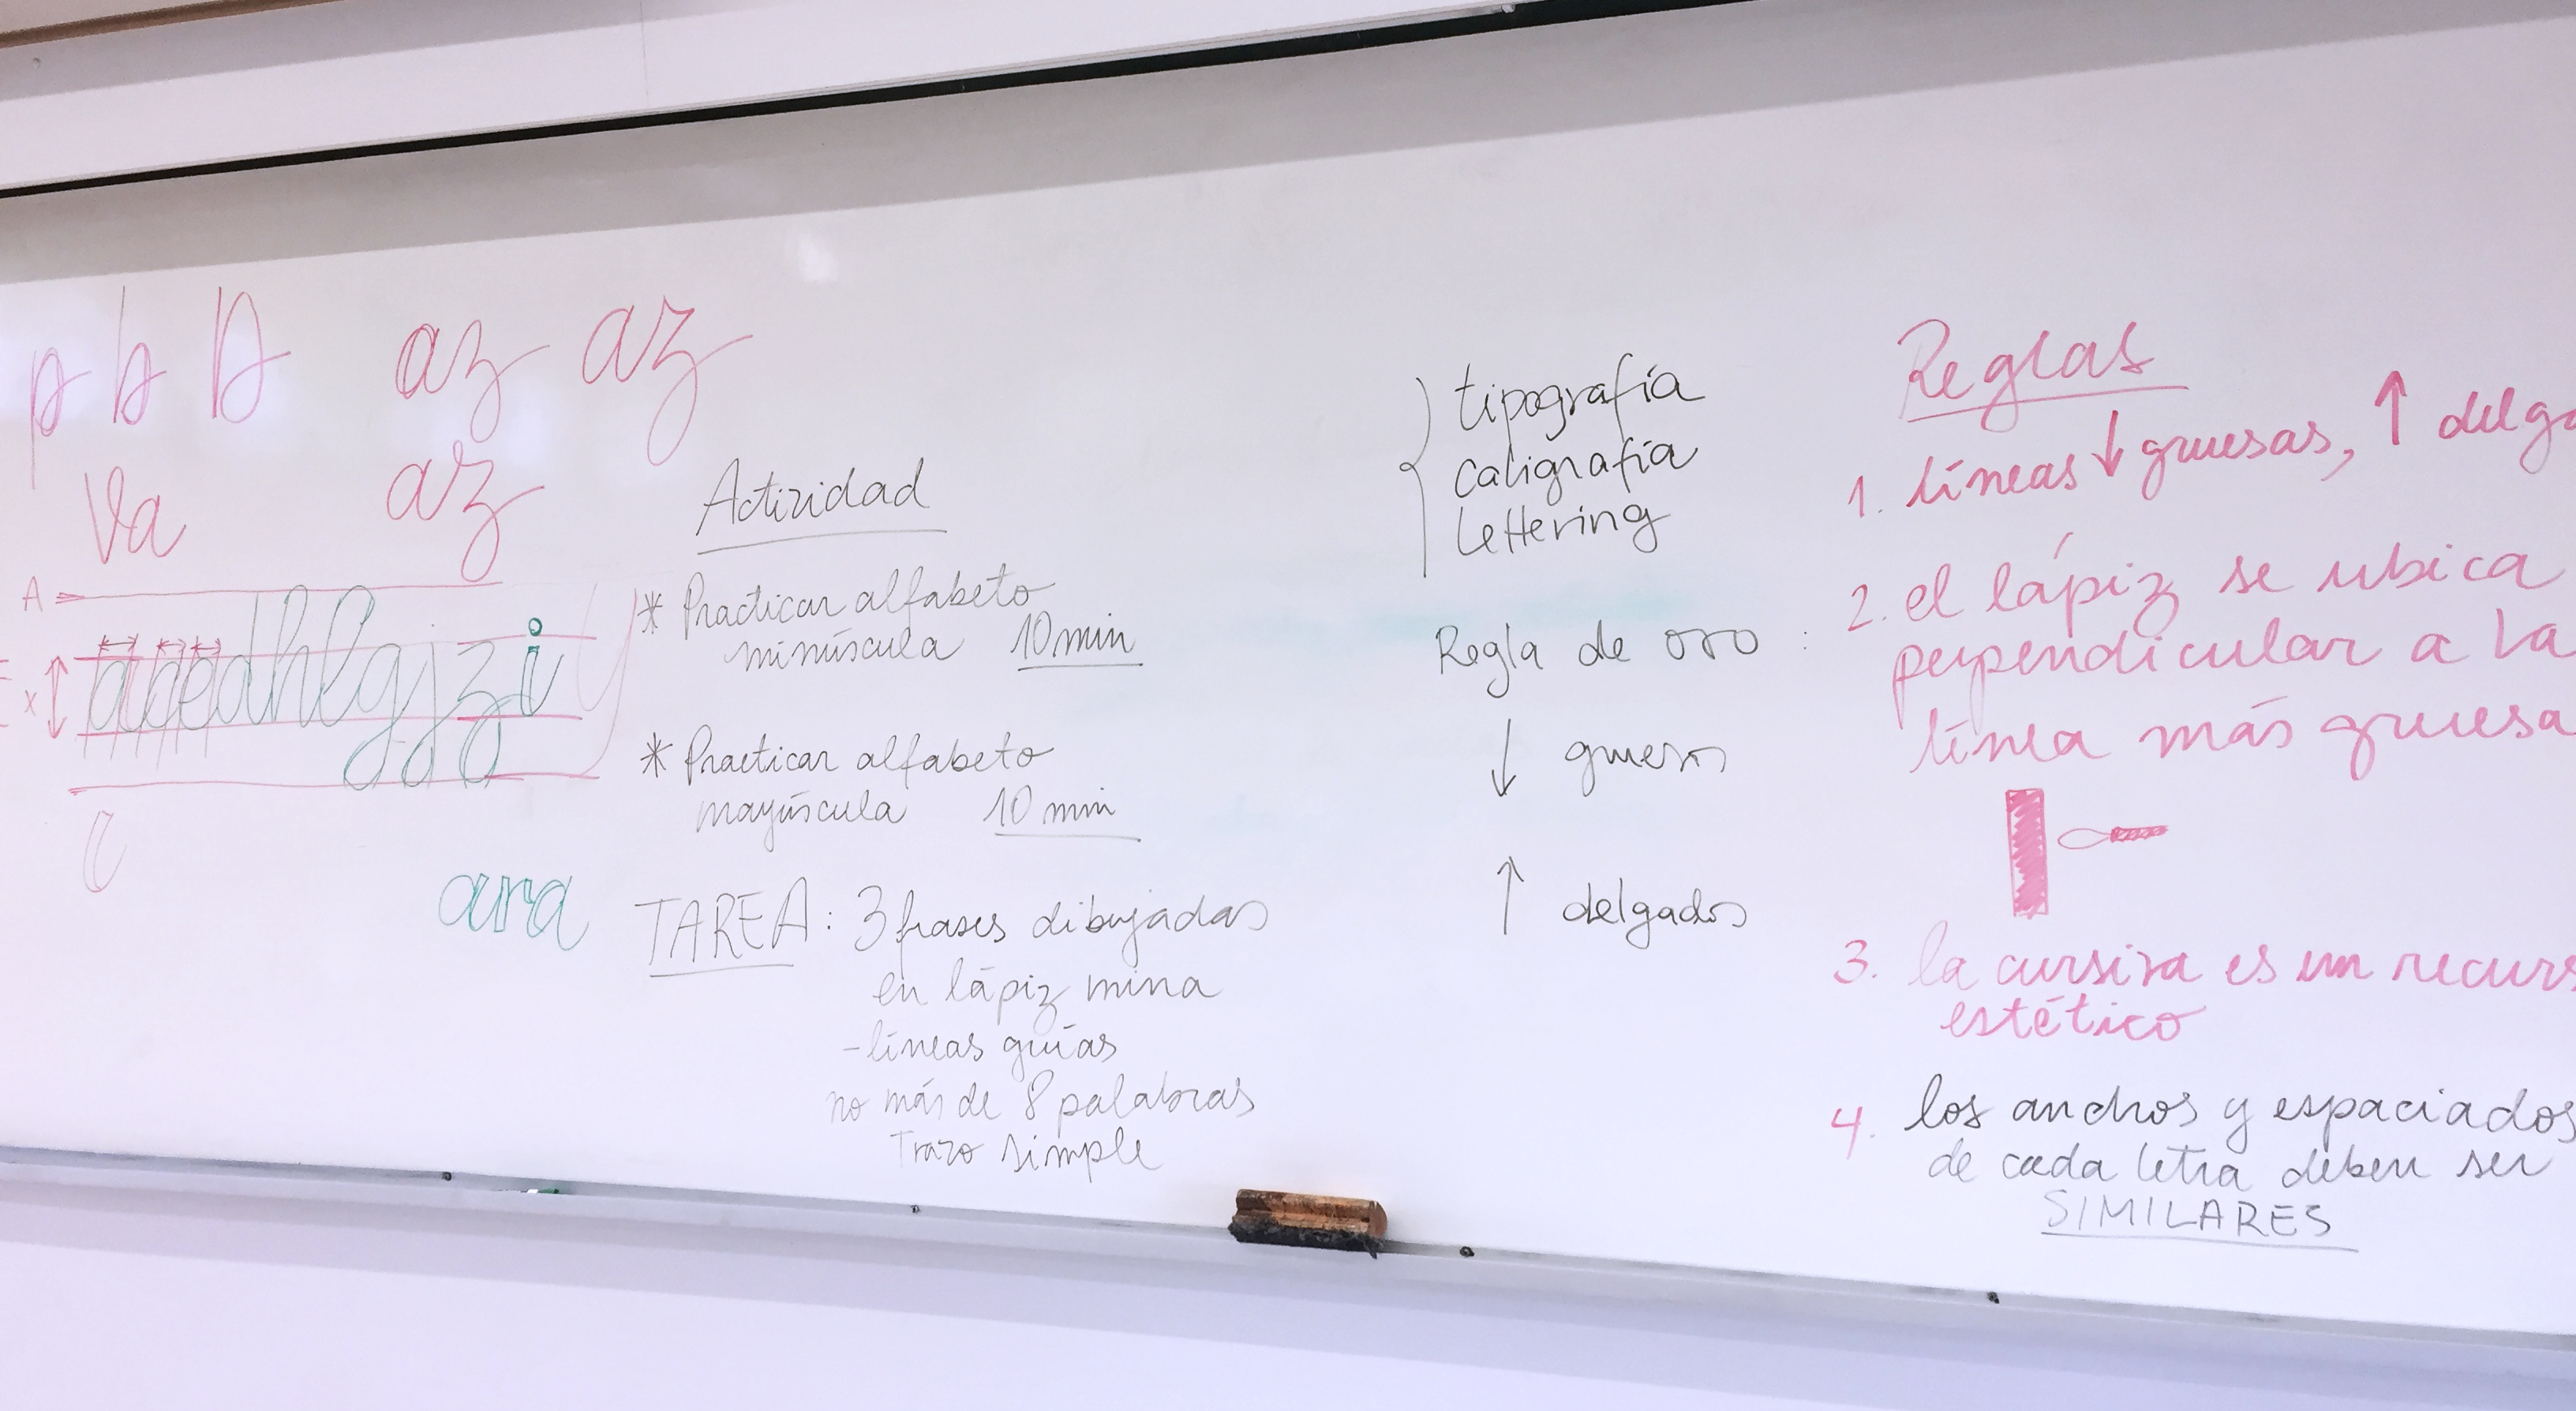 p b D az az
Va az
A
x
a c e d h l g j z i y
ara
Actividad
* Practicar alfabeto
minúscula 10 min
* Practicar alfabeto
mayúscula 10 min
TAREA: 3 frases dibujadas
en lápiz mina
- líneas guías
no más de 8 palabras
Trazo simple
tipografía
caligrafía
lettering
Regla de oro :
↓ gruesos
↑ delgados
Reglas
1. líneas ↓ gruesas, ↑ delga
2. el lápiz se ubica
perpendicular a la
línea más gruesa
3. la cursiva es un recurs
estético
4. los anchos y espaciados
de cada letra deben ser
SIMILARES